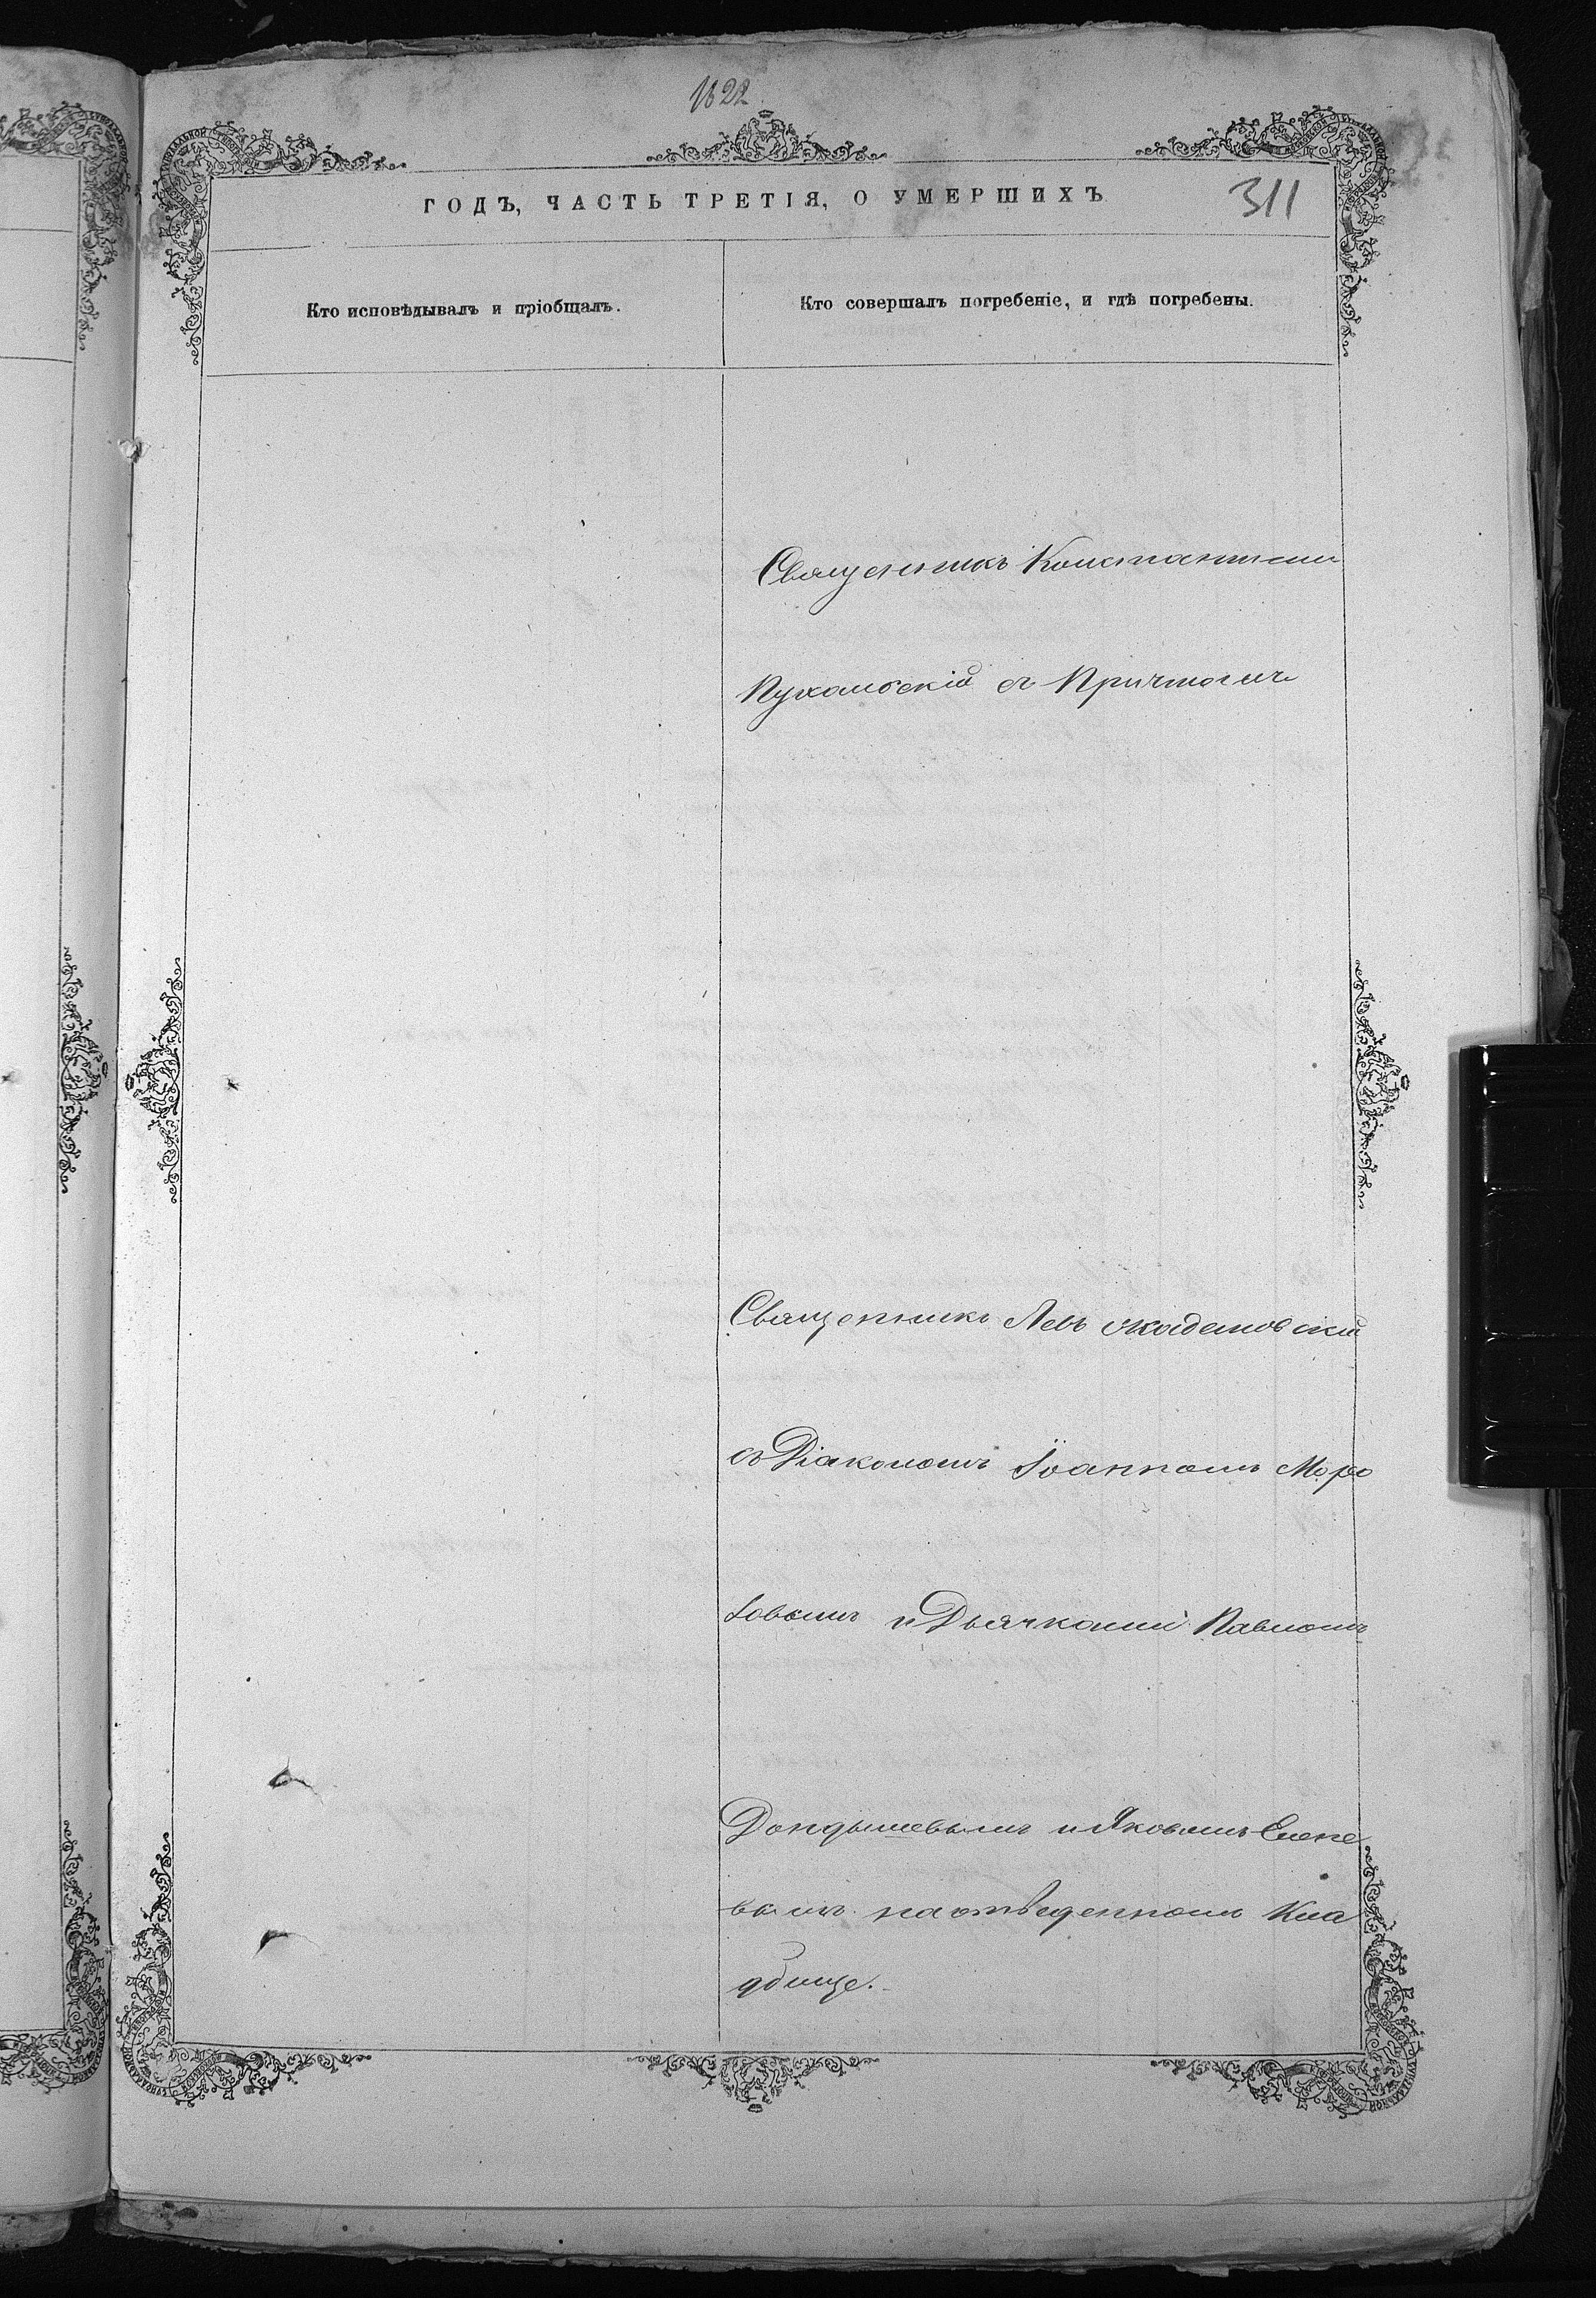 1622
ГОДЪ, ЧАСТЬ ТРЕТІЯ, О УМЕРШИХЪ
311
Кто исповѣдывалъ и пріобщалъ.
Кто совершалъ погребеніе, и гдѣ погребены.
Священникъ Константинъ
Пухальскій съ Причтомъ
Священникъ Левъ Академовскій
съ Діакономъ Іоанномъ Моро
зовымъ и Дьячками Павломъ
и Яковомъ
вымъ на отведенномъ Кла
дбище.